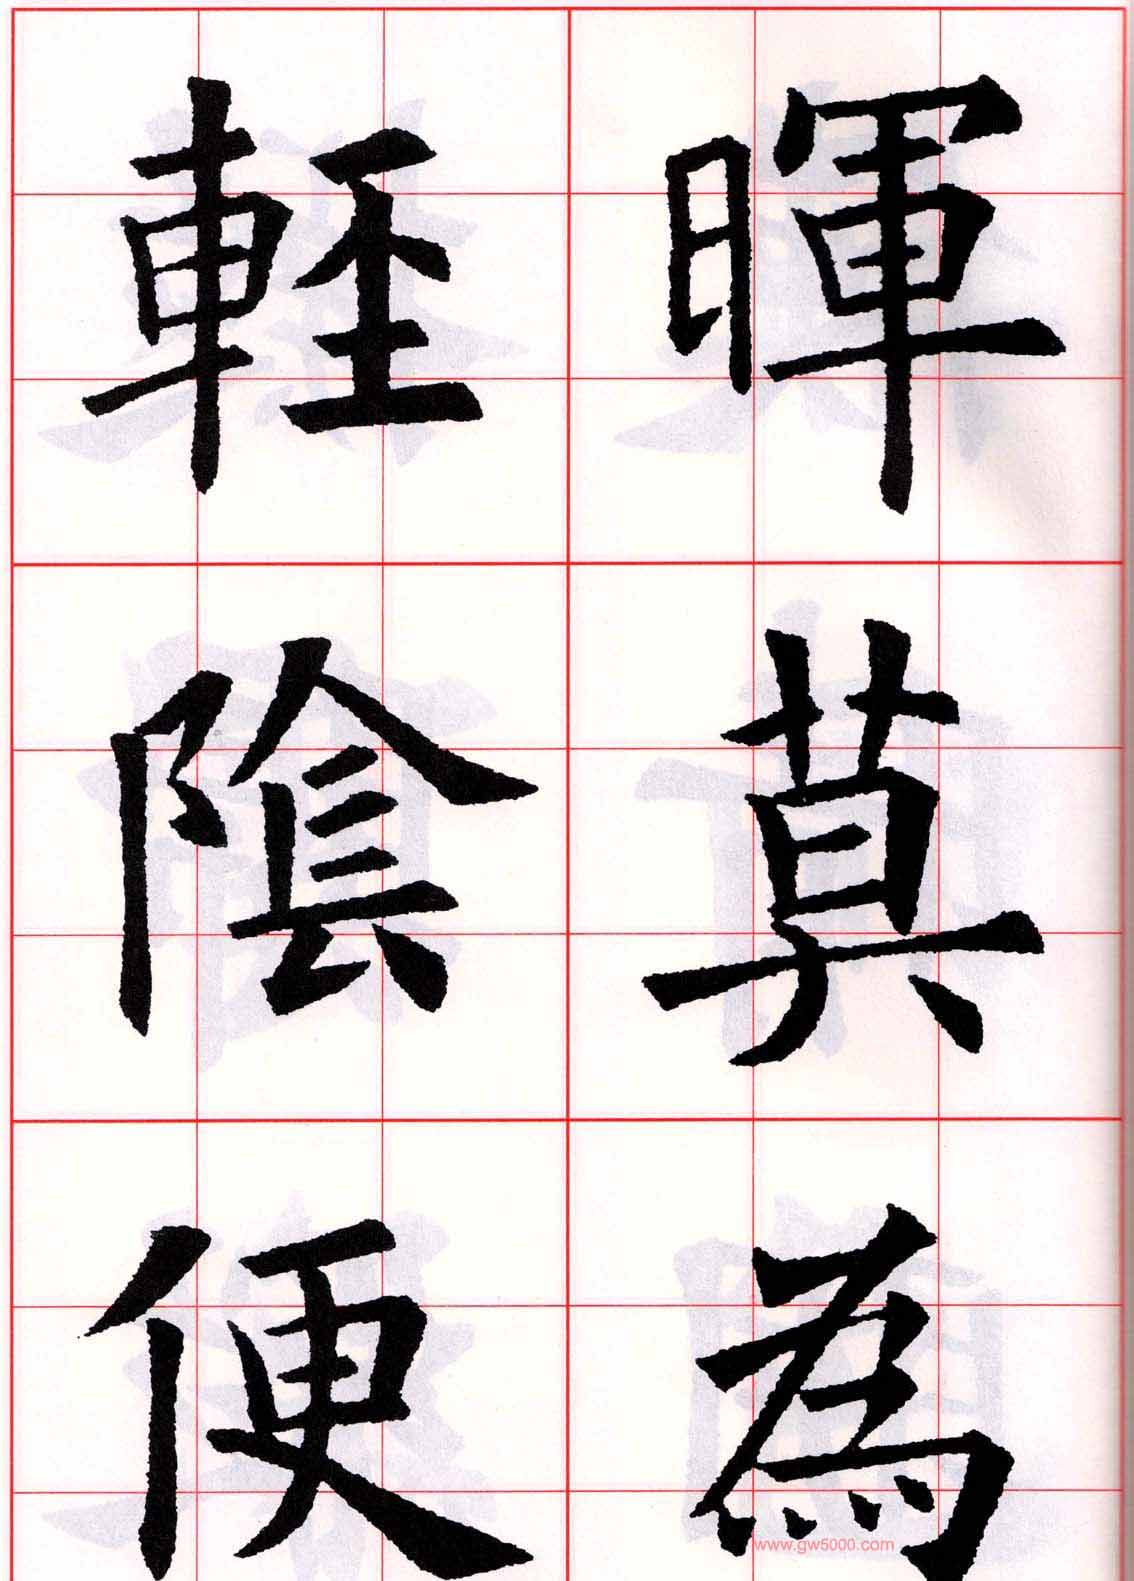 暉莫為
輕陰便
www.gw5000.com